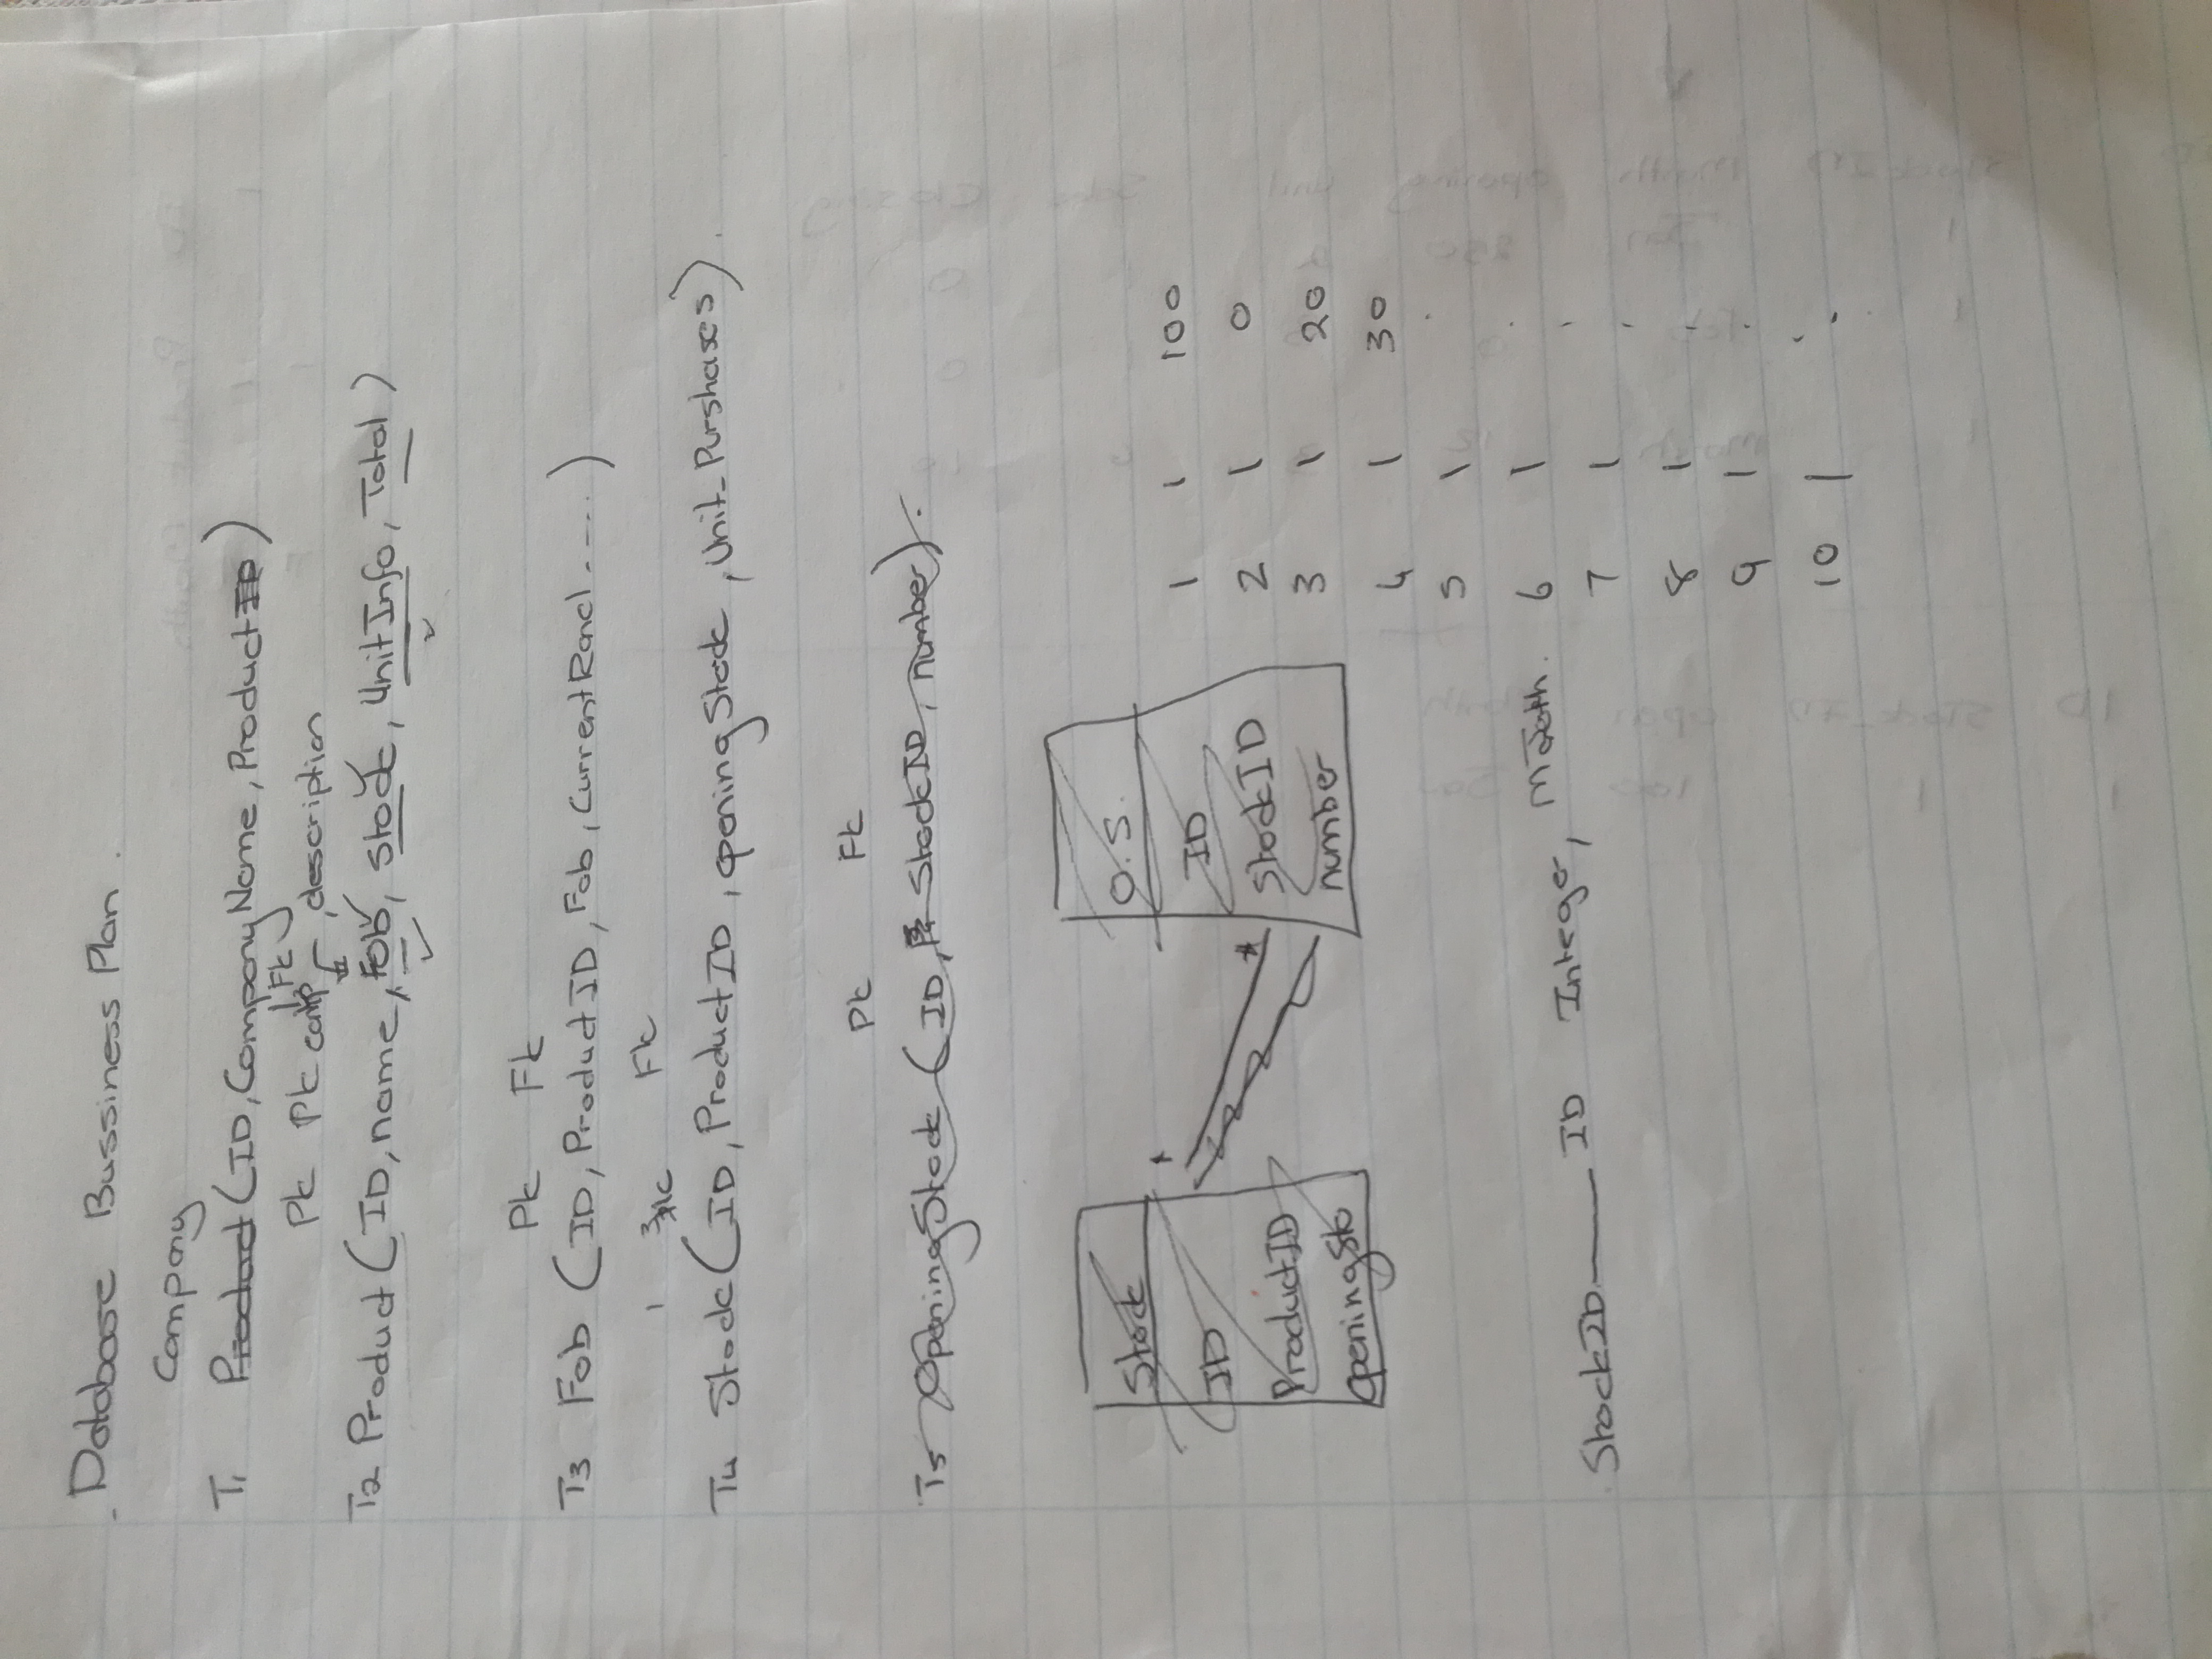 Database Bussiness Plan.
Company
T1 Product (ID, CompanyName, ProductID)
Pk Pk comp Fk, description
T2 Product (ID, name, Fob, stock, UnitInfo, Total)
Pk Fk
T3 Fob (ID, ProductID, Fob, CurrentRand.....)
Fk
T4 Stock (ID, ProductID, openingStock, Unit_Purshases).
Pk Fk
T5 OpeningStock (ID, StockID, number).
Stock
ID
ProductID
OpeningSto
O.S.
ID
StockID
number
1 1 100
2 1 0
3 1 20
4 1 30
5 1 .
6 1 .
7 1 .
8 1 .
9 1 .
10 1 .
StockID — ID Integer,